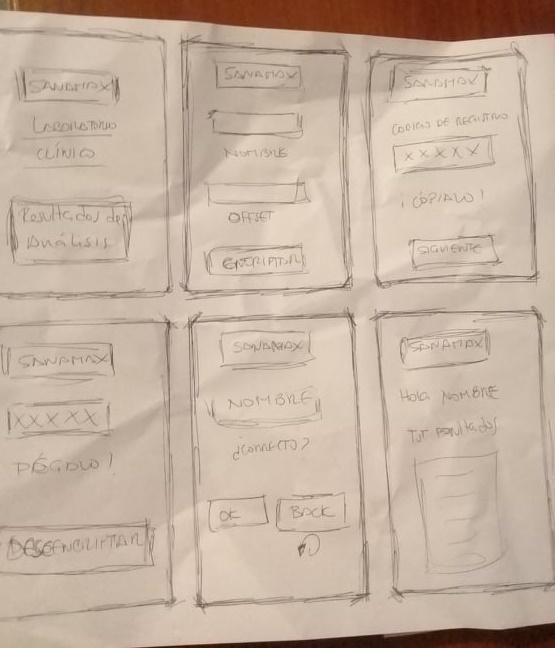 SANAMAX
LABORATORIO
CLÍNICO
Resultados de
Análisis
SANAMAX
NOMBRE
OFFSET
ENCRIPTAR
SANAMAX
CODIGO DE REGISTRO
XXXXX
¡CÓPIALO!
SIGUIENTE
SANAMAX
XXXXX
PÉGALO!
DESENCRIPTAR
SANAMAX
NOMBRE
¿CORRECTO?
OK
BACK
SANAMAX
Hola NOMBRE